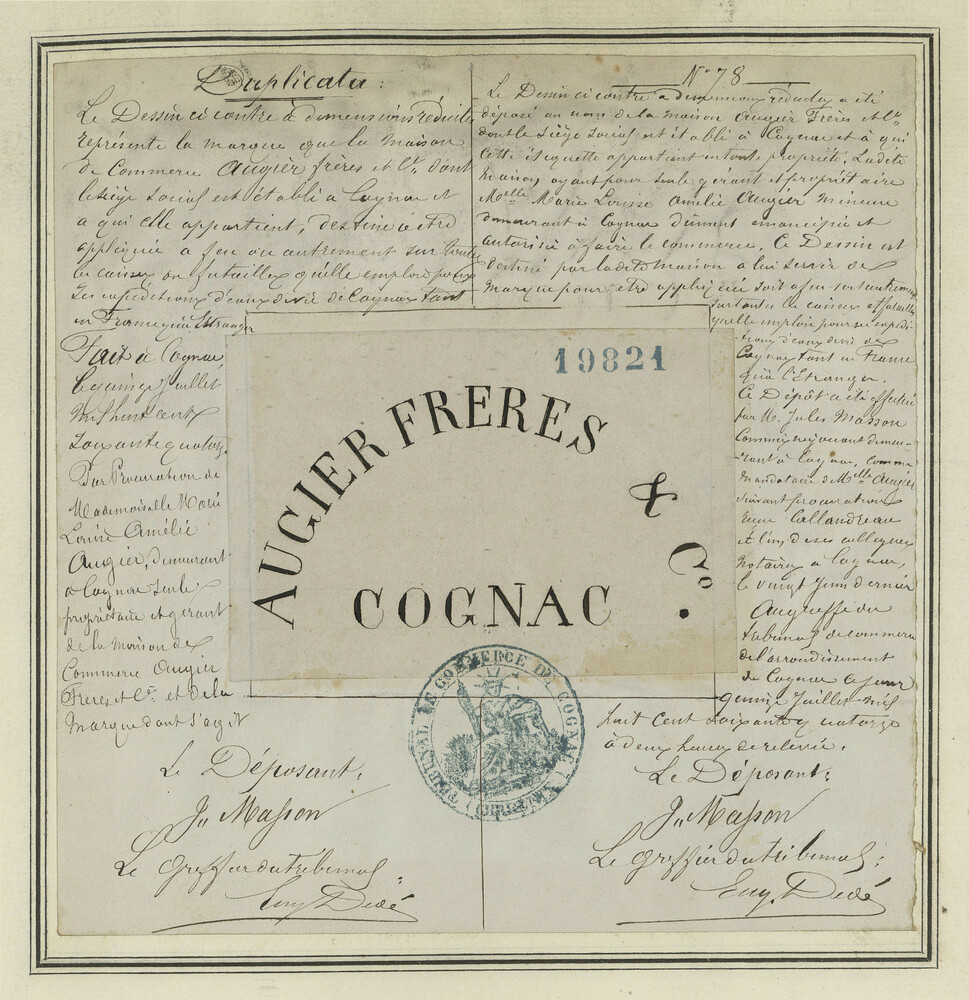 Duplicata :
Le Dessin ci contre à dimensions réduites
représente la marque que la maison
de Commerce Augier frères et Cie dont
le siège social est établi à Cognac et
à qui elle appartient, destiné à être
appliquée à feu ou autrement sur toutes
les caisses ou futailles qu'elle emploie pour
ses expéditions d'eaux de vie de Cognac tant
en France qu'à l'Etranger
Fait à Cognac,
le quinze Juillet
mil huit cent
soixante quatorze
Par Procuration de
Mademoiselle Marie
Louise Amélie
Augier, demeurant
à Cognac seule
propriétaire et gérant
de la maison de
Commerce Augier
Frères et Cie et de la
marque dont s'agit
Le Déposant,
Ju Masson
Le greffier du tribunal :
Eug. Dedé
N° 78
Le Dessin ci contre à dimensions réduites a été
déposé au nom de la maison Augier Frères et Cie
dont le siège social est établi à Cognac et à qui
cette étiquette appartient en toute propriété. Ladite
maison ayant pour seule gérant et propriétaire
Melle Marie Louise Amélie Augier mineure
demeurant à Cognac dûment émancipée et
autorisée à faire le commerce. Ce Dessin est
destiné par ladite maison à lui servir de
marque pour être appliquée soit à feu soit autrement
sur toutes les caisses et futailles
qu'elle emploie pour ses expédi-
tions d'eaux de vie de
Cognac tant en France
qu'à l'Etranger.
Ce Dépôt a été effectué
par M. Jules Masson
Commis négociant demeu-
rant à Cognac, comme
mandataire de Melle Augier
suivant procuration
Callandreau
et l'un de ses collègues
notaires à Cognac,
le vingt Juin dernier
Au greffe du
tribunal de commerce
de l'arrondissement
de Cognac ce jour
quinze Juillet mil
huit cent soixante quatorze
à deux heures de relevée.
Le Déposant :
Ju Masson
Le greffier du tribunal :
Eug. Dedé
19821
AUGIER FRERES & Co.
COGNAC
TRIBUNAL DE COMMERCE DE COGNAC (CHARENTE)